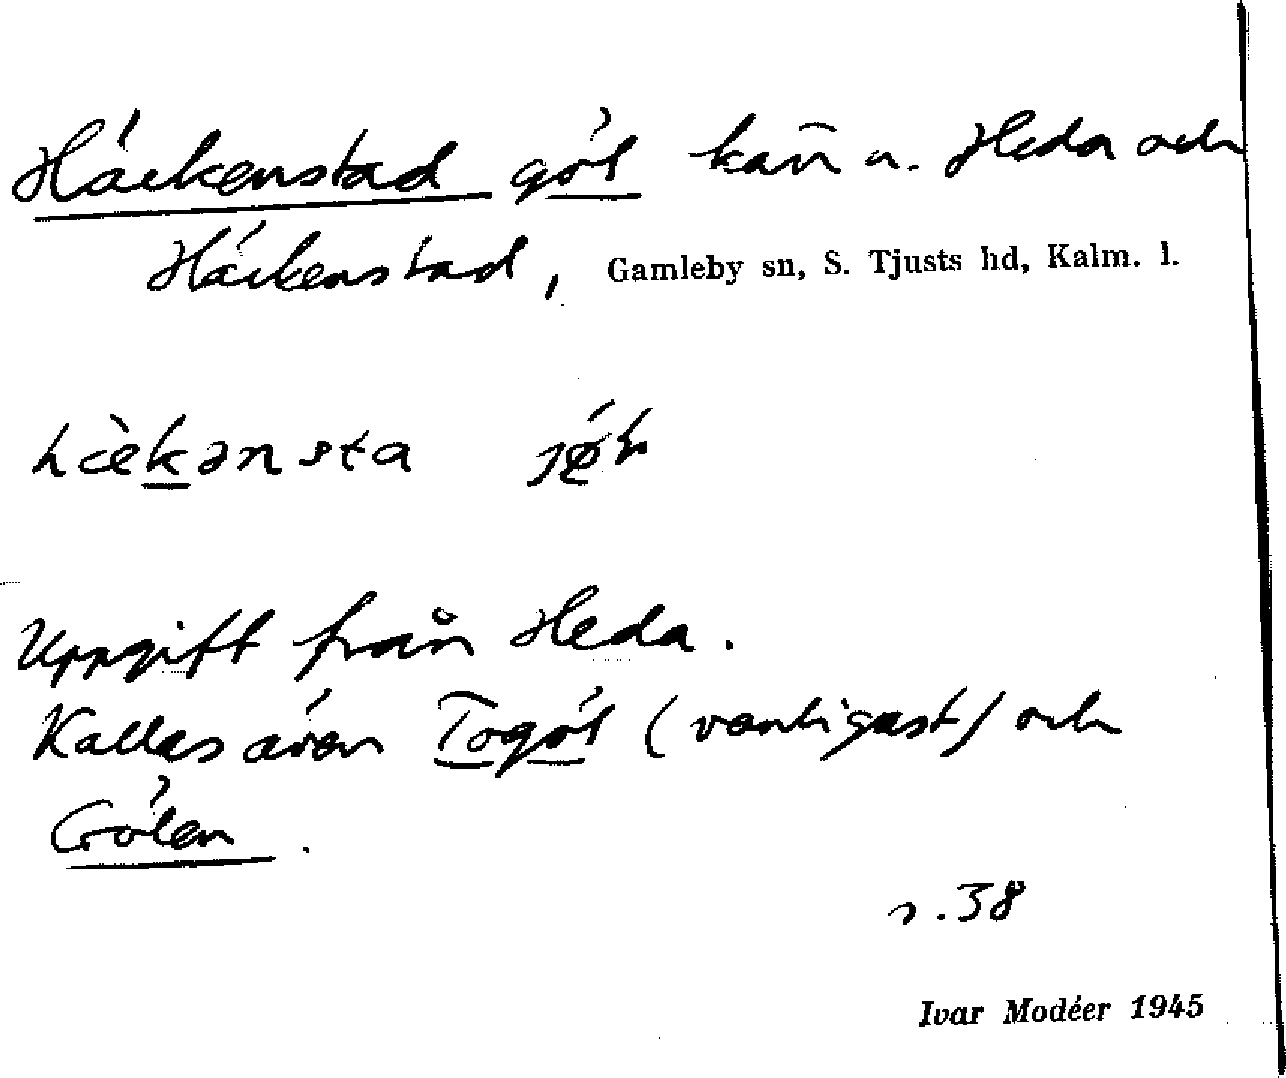 Häckenstad göl kärr n. Heda och
Häckenstad, Gamleby sn, S. Tjusts hd, Kalm. l.
Uppgift från Heda.
Kallas även Togöl (vanligast) och
Gölen.
s. 38
Ivar Modéer 1945